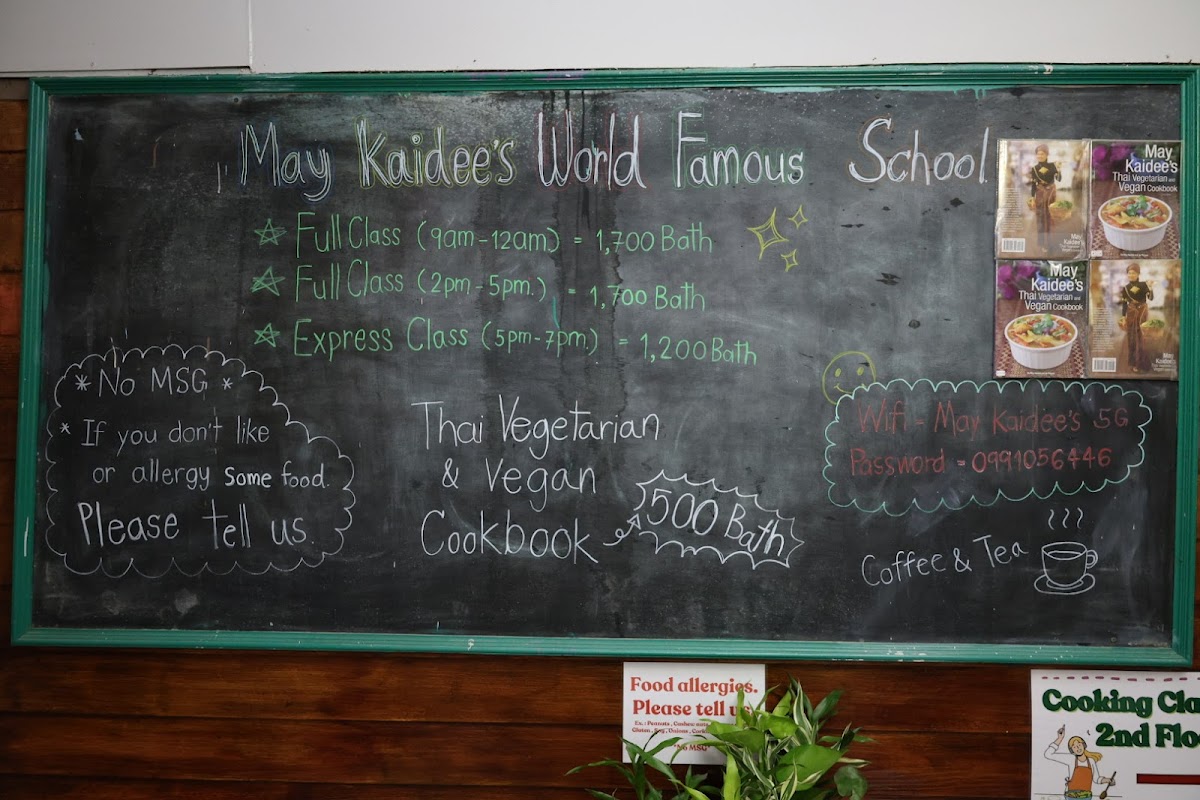 May Kaidee's World Famous School
Full Class (9am-12am.) = 1,700 Bath
Full Class (2pm-5pm.) = 1,700 Bath
Express Class (5pm-7pm.) = 1,200 Bath
* No MSG *
* If you don't like
or allergy some food.
Please tell us.
Thai Vegetarian
& Vegan
Cookbook
500 Bath
May
Kaidee's
Thai Vegetarian and
Vegan Cookbook
May
Kaidee's
May
Kaidee's
Thai Vegetarian and
Vegan Cookbook
May
Kaidee's
Wifi - May Kaidee's 5G
Password = 0991056446
Coffee & Tea
Food allergies.
Please tell us
Ex. : Peanuts , Cashew
Gluten , Soy
*No MSG*
Cooking Cla
2nd Flo